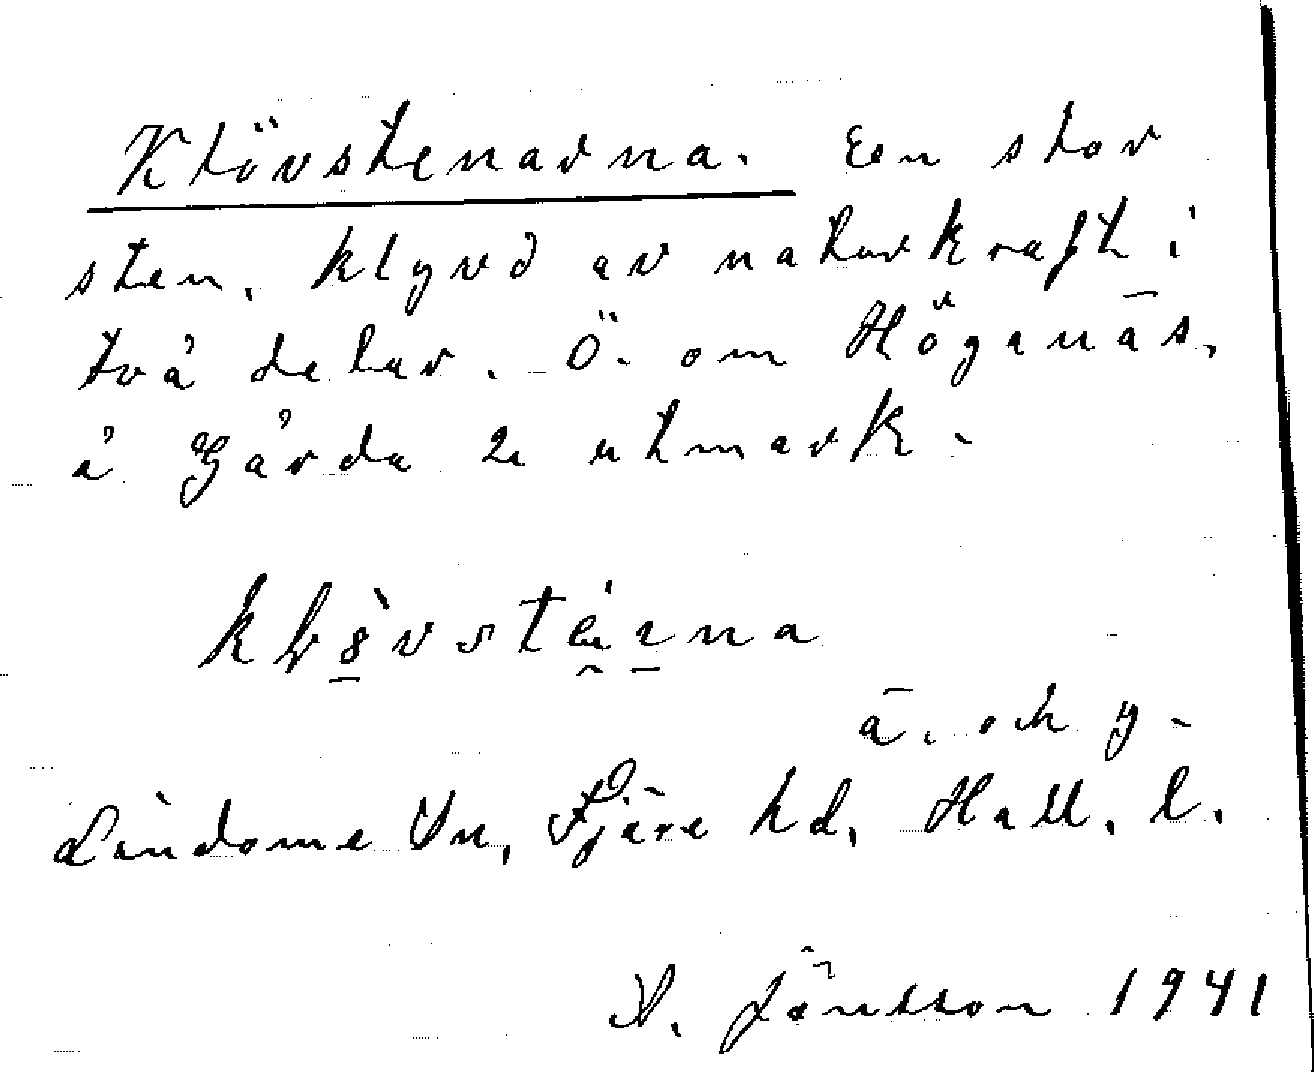 Klövstenarna. En stor
sten, klyvd av naturkraft i
två delar. Ö. om Höganäs,
å Gårda 2 utmark.
ä. och y.
Lindome sn, Fjäre hd, Hall. l.
A. Jönsson 1941